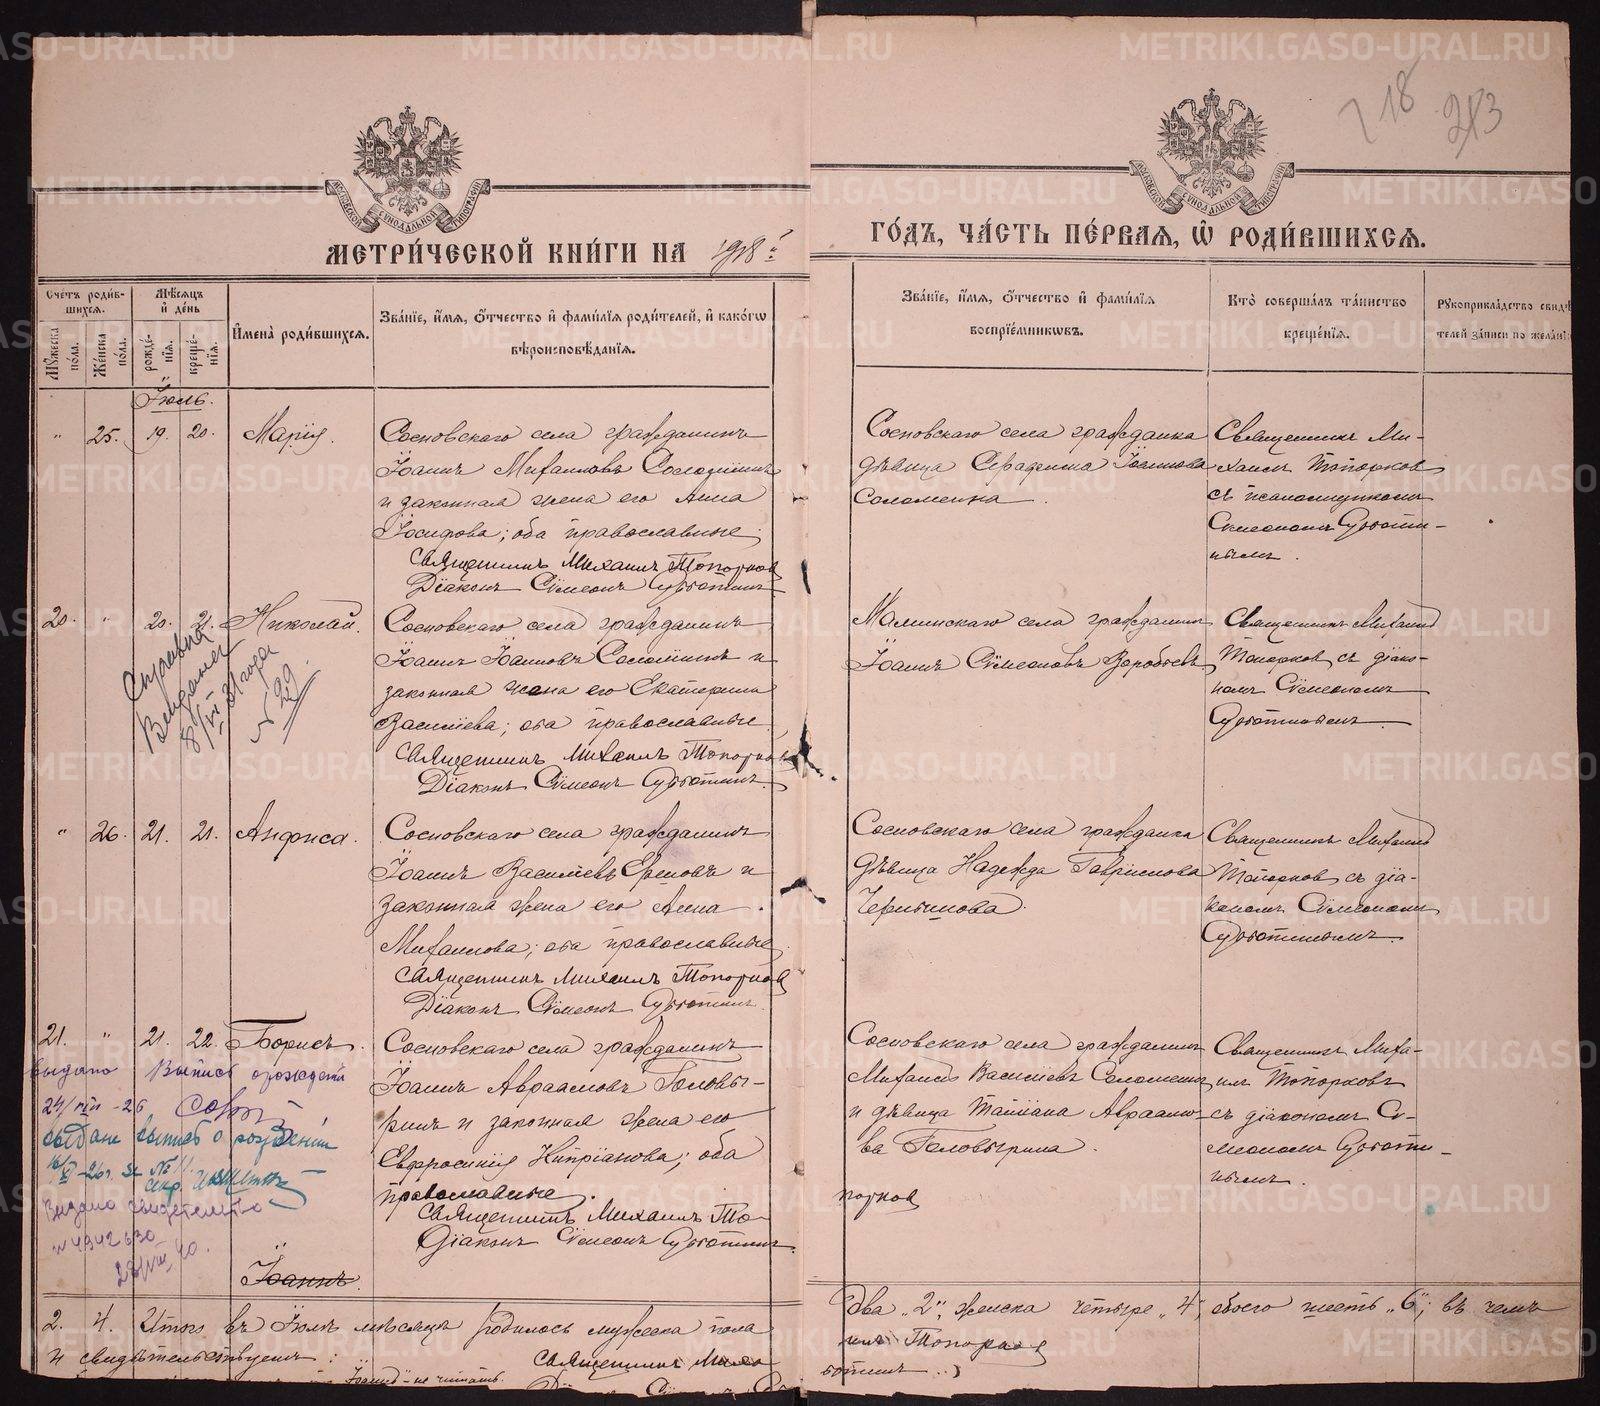 718 213
МЕТРИ́ЧЕСКОЙ КНИ́ГИ НА 1918й
ГО́ДЪ, ЧА́СТЬ ПЕ́РВАЯ, Ѡ РОДИ́ВШИХСЯ.
Сче́тъ роди́вшихся.
Му́жеска по́ла.
Же́нска по́ла.
Мѣ́сяцъ и де́нь
рожде́нія.
креще́нія.
Имена̀ роди́вшихся.
Зва́ніе, и́мя, о́тчество и фами́лія роди́телей, и како́гѡ
вѣроисповѣ́данія.
Зва́ніе, и́мя, о́тчество и фами́лія
воспріе́мниковъ.
Кто̀ соверша́лъ та́инство
креще́нія.
Рукоприкла́дство свидѣ
телей за́писи по жела́ні
Іюль.
" 25. 19. 20. Марія.
Сосновскаго села гражданинъ
Іоаннъ Михаиловъ Соломеинъ
и законная жена его Анна
Іосифова; оба православные
Священникъ Михаилъ Топорков
Діаконъ Сѵмеонъ Субботинъ
Сосновскаго села гражданка
дѣвица Серафима Іоаннова
Соломеина.
Священникъ Ми-
хаилъ Топорков
съ псаломщикомъ
Сѵмеономъ Субботи-
нымъ.
20. " 20. 21. Николай.
Справка
Выдана
№ 99
Сосновскаго села гражданинъ
Іоаннъ Іоанновъ Соломеинъ и
законная жена его Екатерина
Василіева; оба православные
Священникъ Михаилъ Топорков
Діаконъ Сѵмеонъ Субботинъ.
Маминскаго села гражданин
Іоаннъ Сѵмеоновъ Воробьевъ
Священникъ Михаилъ
Топорков съ діако-
номъ Сѵмеономъ
Субботинымъ.
" 26. 21. 21. Анфиса.
Сосновскаго села гражданинъ
Іоаннъ Василіевъ Ереновъ и
законная жена его Анна
Михаилова; оба православные.
Священникъ Михаилъ Топорков
Діаконъ Сѵмеонъ Субботинъ
Сосновскаго села гражданка
дѣвица Надежда Гавриилова
Священникъ Михаилъ
Топорков съ діа-
кономъ Сѵмеономъ
Субботинымъ.
21. " 21. 22. Борисъ.
Выдано Выпись о рождении
24/VIII-26
выдана выпись о рождении
Выдано свидетельство
Сосновскаго села гражданинъ
Іоаннъ Авраамовъ Головы-
ринъ и законная жена его
Евфросинія Кипріанова; оба
православные.
Священникъ Михаилъ То-
порков
Діаконъ Сѵмеонъ Субботинъ.
Сосновскаго села гражданинъ
Михаилъ Василіевъ Соломеинъ
и дѣвица Татіана Авраамо-
ва Головырина.
Священникъ Миха-
илъ Топорковъ
съ діакономъ Сѵ-
меономъ Субботи-
нымъ.
Іоаннъ.
2. 4. Итого въ Іюлѣ мѣсяцѣ родилось мужеска пола
два „2“, женска четыре „4“, обоего шесть „6“; въ чемъ
и свидѣтельствуемъ:
Священникъ Миха
илъ Топорков
Іоаннъ - не читать.
ботинъ..)
METRIKI.GASO-URAL.RU